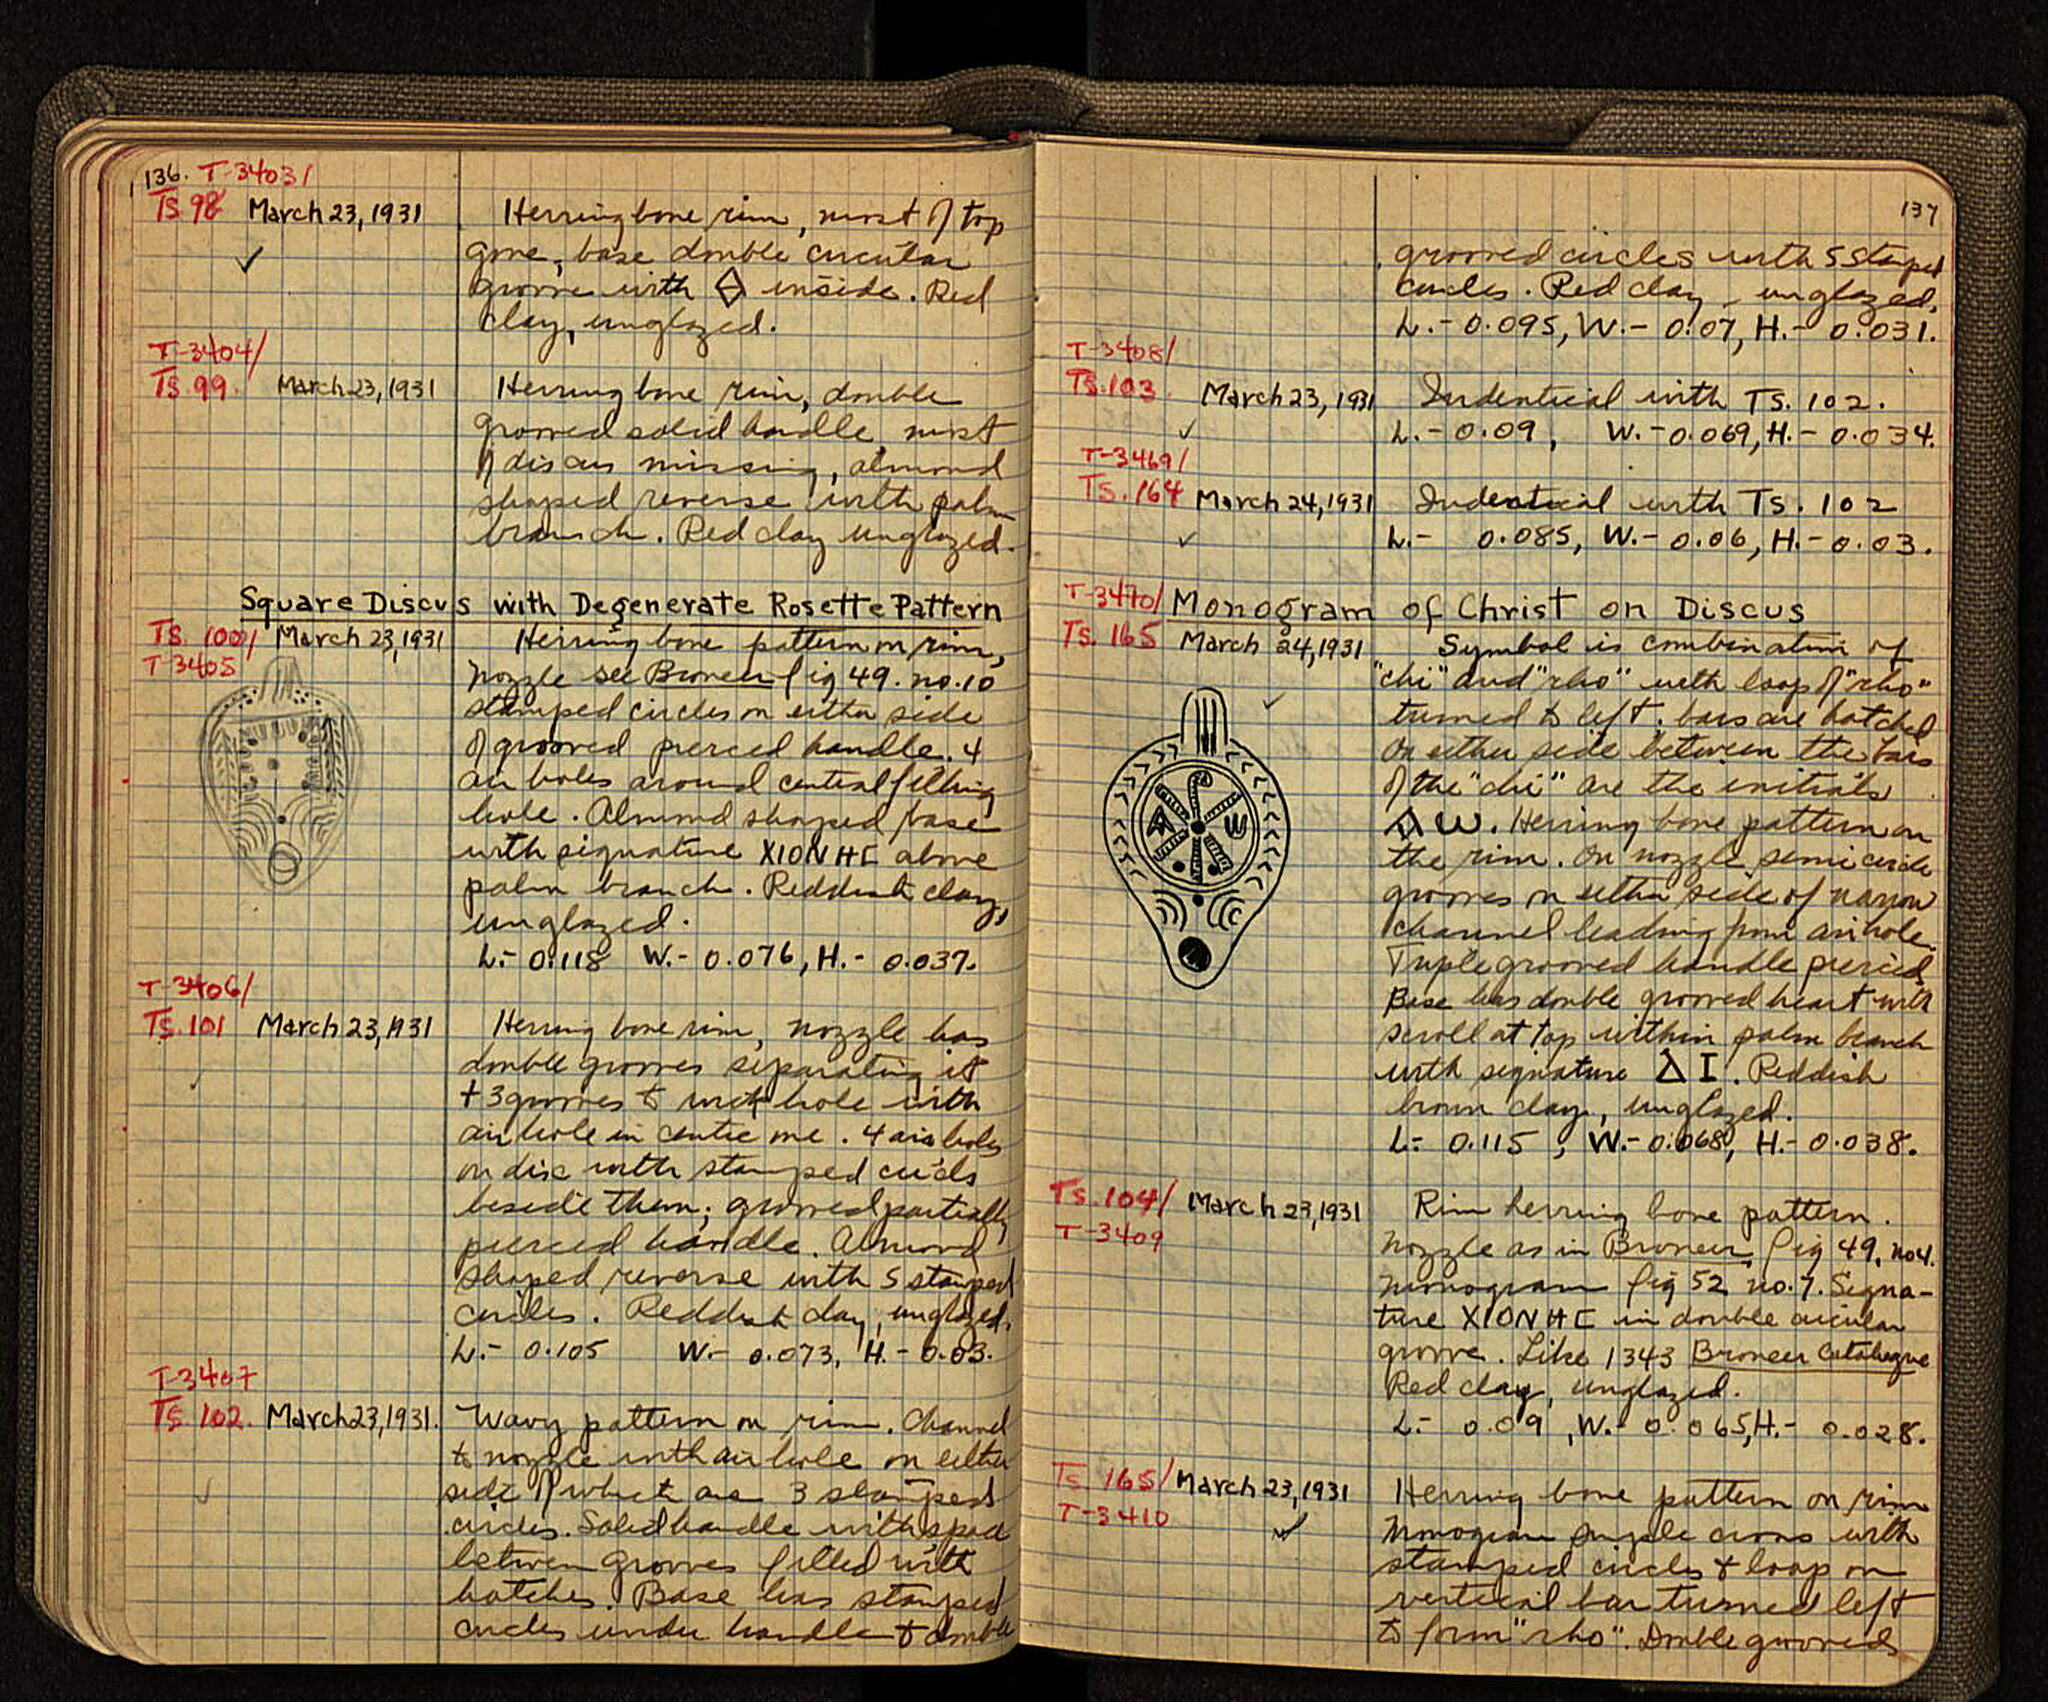 136. T-3403/
Ts 98 March 23, 1931 Herring bone rim, most of top
gone, base double circular
groove with inside. Red
clay, unglazed.
T-3404/
Ts 99. March 23, 1931 Herring bone rim, double
grooved solid handle, most
of discus missing, almond
shaped reverse with palm
branch. Red clay unglazed.
Square Discus with Degenerate Rosette Pattern
Ts. 100/ March 23, 1931 Herring bone pattern on rim,
T-3405 Nozzle see Broneer fig 49. no. 10
stamped circles on either side
of grooved pierced handle. 4
air holes around central filling
hole. Almond shaped base
with signature XIONHC above
palm branch. Reddish clay,
unglazed.
L.- 0.118 W.- 0.076, H.- 0.037.
T-3406/
Ts. 101 March 23, 1931 Herring bone rim, nozzle has
double grooves separating it
+ 3 grooves to wick hole with
air hole in centre one. 4 air holes
on disc with stamped circles
beside them; grooved partially
pierced handle. Almond
shaped reverse with 5 stamped
circles. Reddish clay, unglazed.
L.- 0.105 W.- 0.073, H.- 0.03.
T-3407
Ts. 102. March 23, 1931. Wavy pattern on rim. Channel
to nozzle with air hole on either
side of which are 3 stamped
circles. Solid handle with space
between grooves filled with
hatches. Base has stamped
circles under handle & double
137
grooved circles with 5 stamped
circles. Red clay, unglazed.
L.- 0.095, W.- 0.07, H.- 0.031.
T-3408/
Ts. 103 March 23, 1931 Indentical with Ts. 102.
L.- 0.09, W.- 0.069, H.- 0.034.
T-3469/
Ts. 164 March 24, 1931 Indentical with Ts. 102
L.- 0.085, W.- 0.06, H.- 0.03.
T-3470/ Monogram of Christ on Discus
Ts. 165 March 24, 1931 Symbol is combination of
"chi" and "rho" with loop of "rho"
turned to left. bars are hatched
on either side between the bars
of the "chi" are the initials
A ω. Herring bone pattern on
the rim. On nozzle semi circle
grooves on either side of narrow
channel leading from air hole.
Triple grooved handle pierced,
Base has double grooved heart with
scroll at top within palm branch
with signature Δ I. Reddish
brown clay, unglazed.
L.- 0.115, W.- 0.068, H.- 0.038.
Ts. 104/ March 23, 1931 Rim herring bone pattern.
T-3409 Nozzle as in Broneer, fig 49, no 4.
monogram fig 52 no. 7. Signa-
ture XIONHC in double circular
groove. Like 1343 Broneer Catalogue
Red clay, unglazed.
L.- 0.09, W.- 0.065, H.- 0.028.
Ts 165/ March 23, 1931 Herring bone pattern on rim
T-3410 Monogram simple cross with
stamped circles & loop on
vertical bar turned left
to form "rho". Double grooved